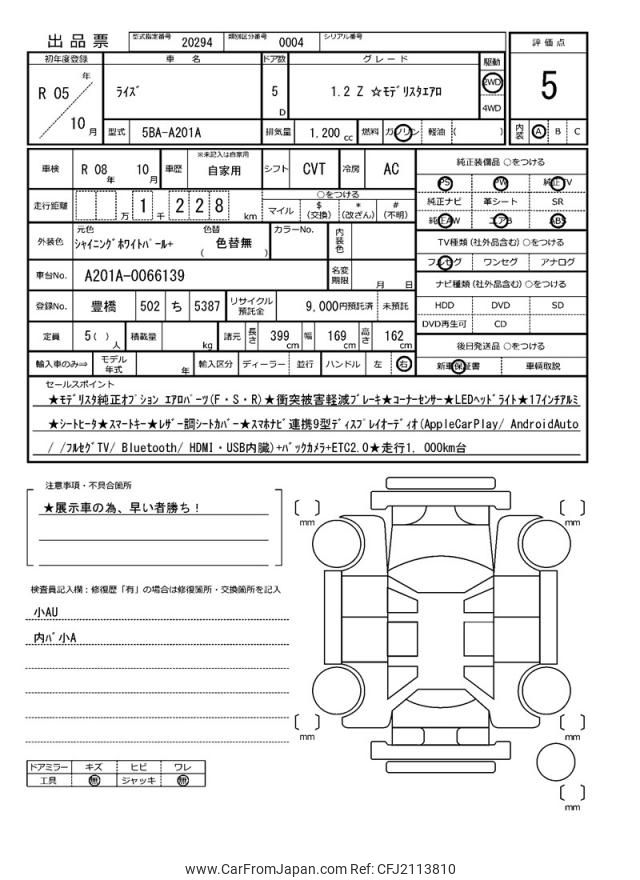 出品票 型式指定番号 20294 類別区分番号 0004 シリアル番号
初年度登録 車名 ドア数 グレード 駆動 評価点
R 05 年 10 月 ﾗｲｽﾞ 5 D 1.2 Z ☆ﾓﾃﾞﾘｽﾀｴｱﾛ 2WD 4WD 5
型式 5BA-A201A 排気量 1,200 cc 燃料 ガソリン 軽油 ( ) 内装 A B C
車検 R 08 年 10 月 車歴 ※未記入は自家用 自家用 シフト CVT 冷房 AC
純正装備品 ○をつける
PS PW 純正TV
純正ナビ 革シート SR
純正AW エアB ABS
走行距離 万 1 千 2 2 8 km ○をつける マイル $ (交換) * (改ざん) # (不明)
外装色 元色 ｼｬｲﾆﾝｸﾞﾎﾜｲﾄﾊﾟｰﾙ+ 色替 ( 色替無 ) カラーNo. 内装色
TV種類 (社外品含む) ○をつける
フルセグ ワンセグ アナログ
車台No. A201A-0066139 名変期限 月 日
ナビ種類 (社外品含む) ○をつける
HDD DVD SD
DVD再生可 CD
登録No. 豊橋 502 ち 5387 リサイクル預託金 9,000円預託済 未預託
定員 5( )人 積載量 kg 諸元 長さ 399 cm 幅 169 cm 高さ 162 cm
後日発送品 ○をつける
新車保証書 車輌取説
輸入車のみ⇒ モデル年式 年 輸入区分 ディーラー 並行 ハンドル 左 右
セールスポイント
★ﾓﾃﾞﾘｽﾀ純正ｵﾌﾟｼｮﾝ ｴｱﾛﾊﾟｰﾂ(F・S・R)★衝突被害軽減ﾌﾞﾚｰｷ★ｺｰﾅｰｾﾝｻｰ★LEDﾍｯﾄﾞﾗｲﾄ★17ｲﾝﾁｱﾙﾐ
★ｼｰﾄﾋｰﾀ★ｽﾏｰﾄｷｰ★ﾚｻﾞｰ調ｼｰﾄｶﾊﾞｰ★ｽﾏﾎﾅﾋﾞ連携9型ﾃﾞｨｽﾌﾟﾚｲｵｰﾃﾞｨｵ(AppleCarPlay/ AndroidAuto
/ /ﾌﾙｾｸﾞTV/ Bluetooth/ HDMI・USB内臓)+ﾊﾞｯｸｶﾒﾗ+ETC2.0★走行1,000km台
注意事項・不具合箇所
★展示車の為、早い者勝ち！
検査員記入欄：修復歴「有」の場合は修復箇所・交換箇所を記入
小AU
内ﾊﾞ小A
mm
mm
mm
mm
mm
ドアミラー キズ ヒビ ワレ
工具 無 ジャッキ 無
www.CarFromJapan.com Ref: CFJ2113810